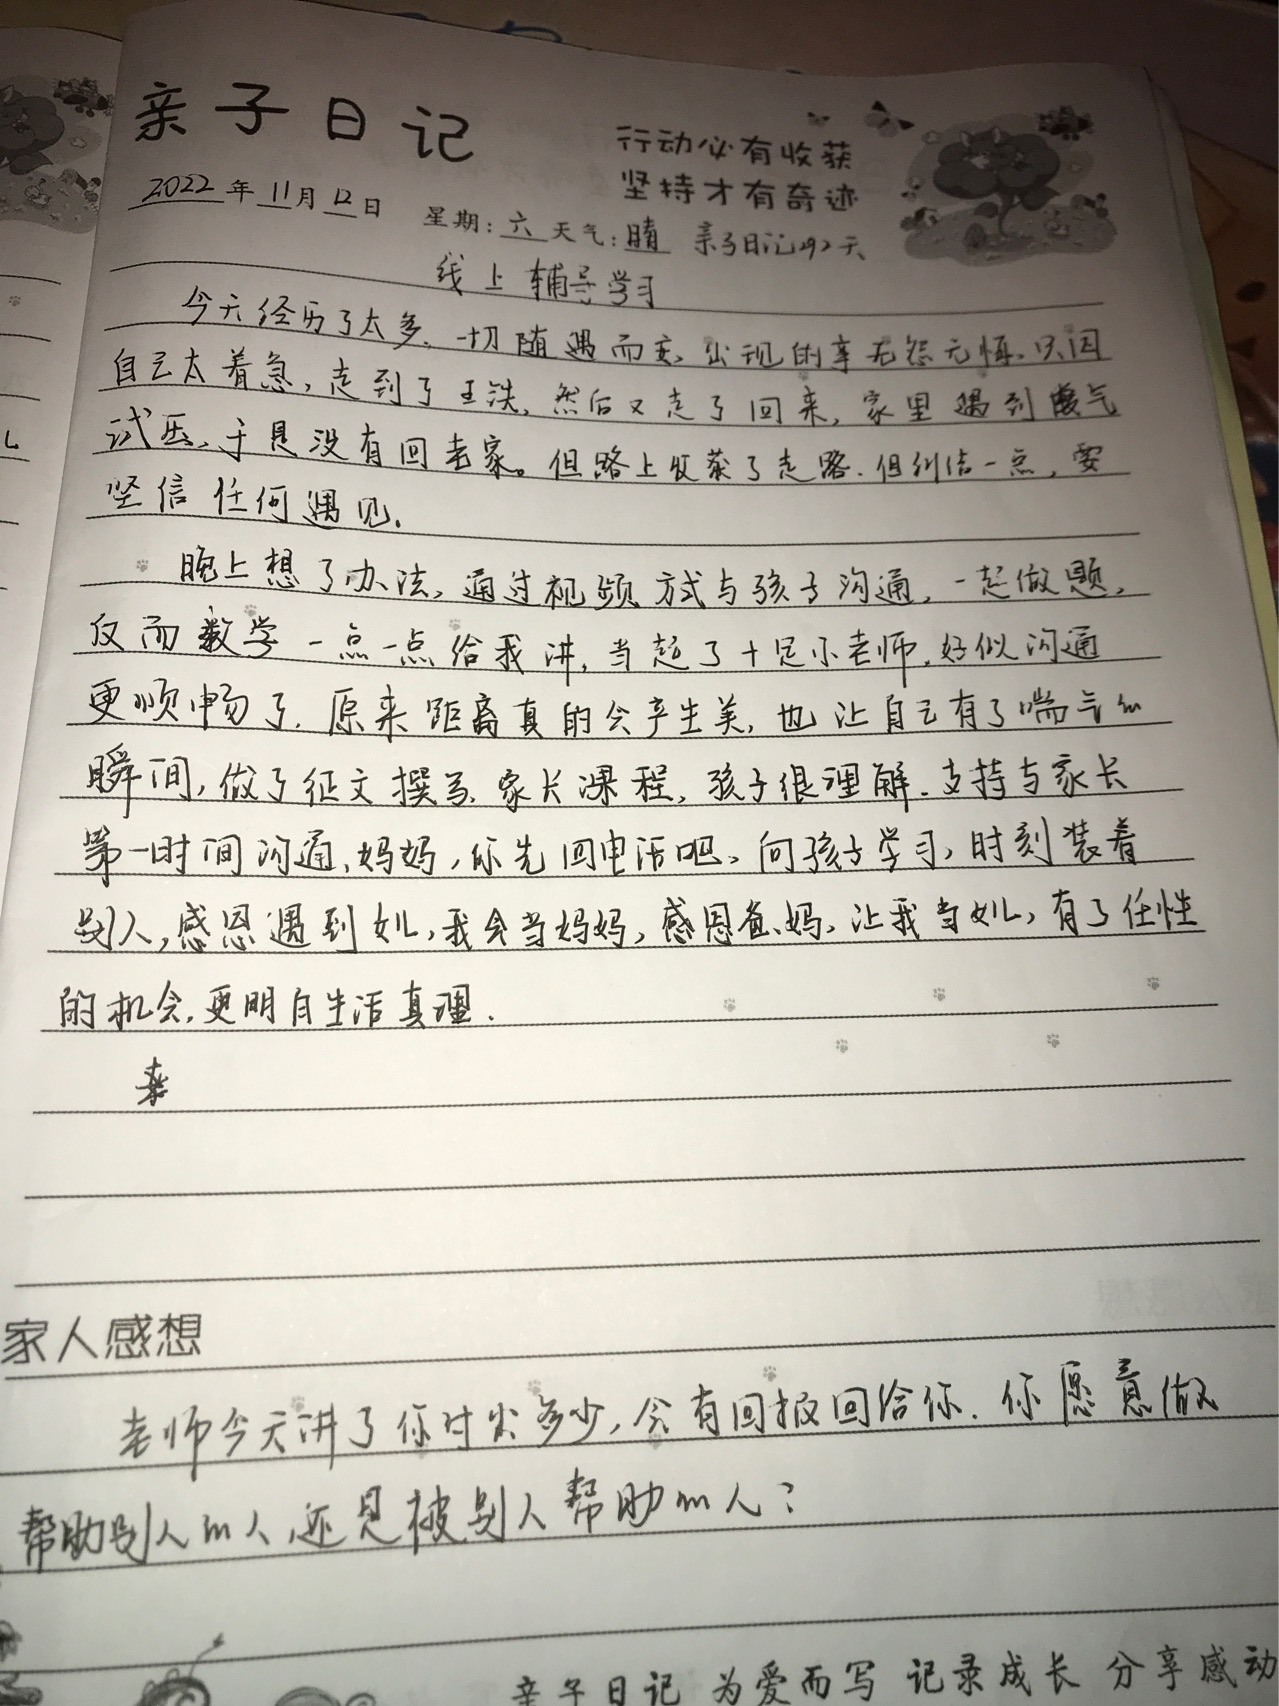 亲子日记
行动必有收获
坚持才有奇迹
2022年11月12日 星期:六 天气:晴 亲子日记292天
线上辅导学习
今天经历了太多,一切随遇而安,出现的事无怨无悔,只因
自己太着急,走到了王铁,然后又走了回来,家里遇到暖气
试压,于是没有回老家。但路上收获了走路,但纠结一点,要
坚信任何遇见.
晚上想了办法,通过视频方式与孩子沟通,一起做题,
反而数学一点一点给我讲,当起了十足小老师,好似沟通
更顺畅了.原来距离真的会产生美,也让自己有了喘气的
瞬间,做了征文撰写,家长课程,孩子很理解.支持与家长
第一时间沟通,妈妈,你先回电话吧,向孩子学习,时刻装着
别人,感恩遇到女儿,我会当妈妈,感恩爸妈,让我当女儿,有了任性
的机会,更明白生活真理.
家人感想
老师今天讲了你付出多少,会有回报回给你.你愿意做
帮助别人的人,还是被别人帮助的人?
亲子日记 为爱而写 记录成长 分享感动